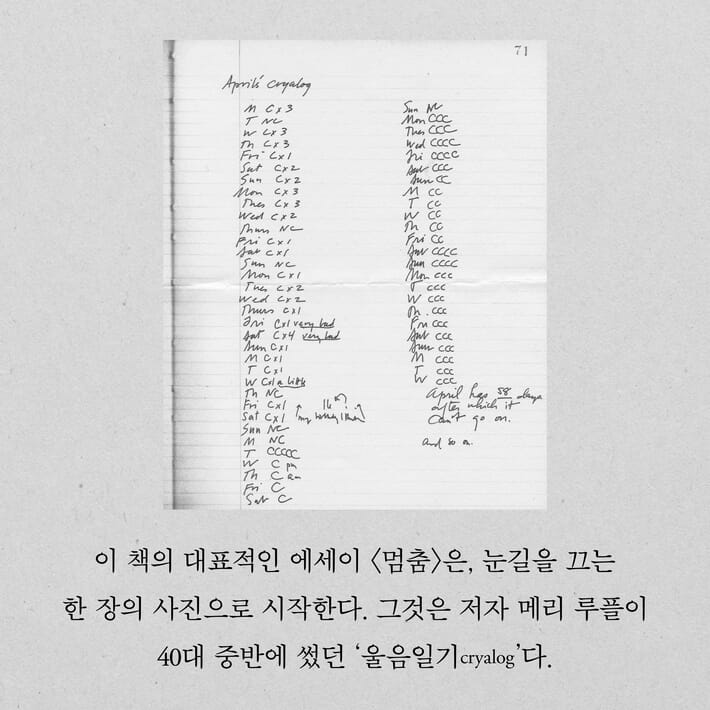 71
April's cryalog
M C x 3
T NC
W C x 3
Th C x 3
Fri C x 1
Sat C x 2
Sun C x 2
Mon C x 3
Tues C x 3
Wed C x 2
Thurs NC
Fri C x 1
Sat C x 1
Sun NC
Mon C x 1
Tues C x 2
Wed C x 2
Thurs C x 1
Fri C x 1 very bad
Sat C x 4 very bad
Sun C x 1
M C x 1
T C x 1
W C x 1 a little
Th NC
Fri C x 1
Sat C x 1
Sun NC
M NC
T CCCCC
W C pm
Th C am
Fri C
Sat C
Sun NC
Mon CCC
Tues CCC
Wed CCCC
Fri CCCC
Sat CCC
Sun CC
M CC
T CC
W CC
Th CC
Fri CC
Sat CCCC
Sun CCCC
Mon CCC
T CCC
W CCC
Th. CCC
Fri CCC
Sat CCC
Sun CCC
M CCC
T CCC
W CCC
April has 58 days
after which it
can't go on.
and so on.
이 책의 대표적인 에세이 〈멈춤〉은, 눈길을 끄는
한 장의 사진으로 시작한다. 그것은 저자 메리 루플이
40대 중반에 썼던 ‘울음일기cryalog’다.